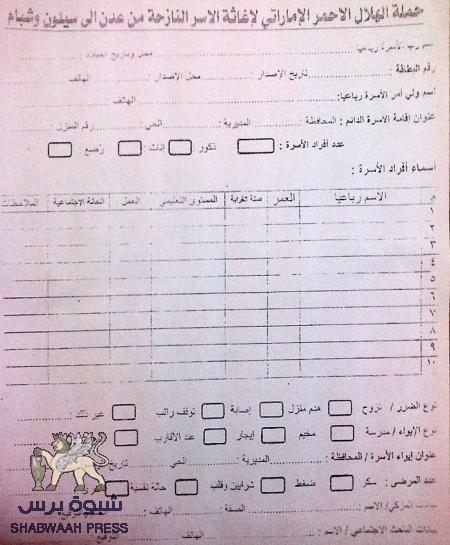 حملة الهلال الاحمر الإماراتي لإغاثة الاسر النازحة من عدن الى سيئون وشبام
اسم رب الأسرة رباعيا : محل وتاريخ الميلاد
رقم البطاقة : تاريخ الإصدار : محل الإصدار الهاتف
اسم ولي أمر الأسرة رباعيا : الهاتف :
عنوان إقامة الأسرة الدائم : المحافظة : المديرية : الحي : رقم المنزل :
عدد أفراد الأسرة : ذكور إناث : رضع :
أسماء أفراد الأسرة :
م الاسم رباعيا العمر صلة القرابة المستوى التعليمي العمل الحالة الاجتماعية الملاحظات
١
٢
٣
٤
٥
٦
٧
٨
٩
١٠
نوع الضرر / نزوح هدم منزل إصابة توقف راتب غير ذلك :
نوع الإيواء / مدرسة مخيم إيجار عند الأقارب
عنوان إيواء الأسرة / المحافظة : المديرية : الحي : تاريخ
عدد المرضى : سكر ضغط شرايين وقلب حالة نفسية
بيانات المزكي / الاسم : الصفة : الهاتف :
بيانات الباحث الاجتماعي / الاسم : الهاتف التوقيع
شبوة برس
SHABWAAH PRESS